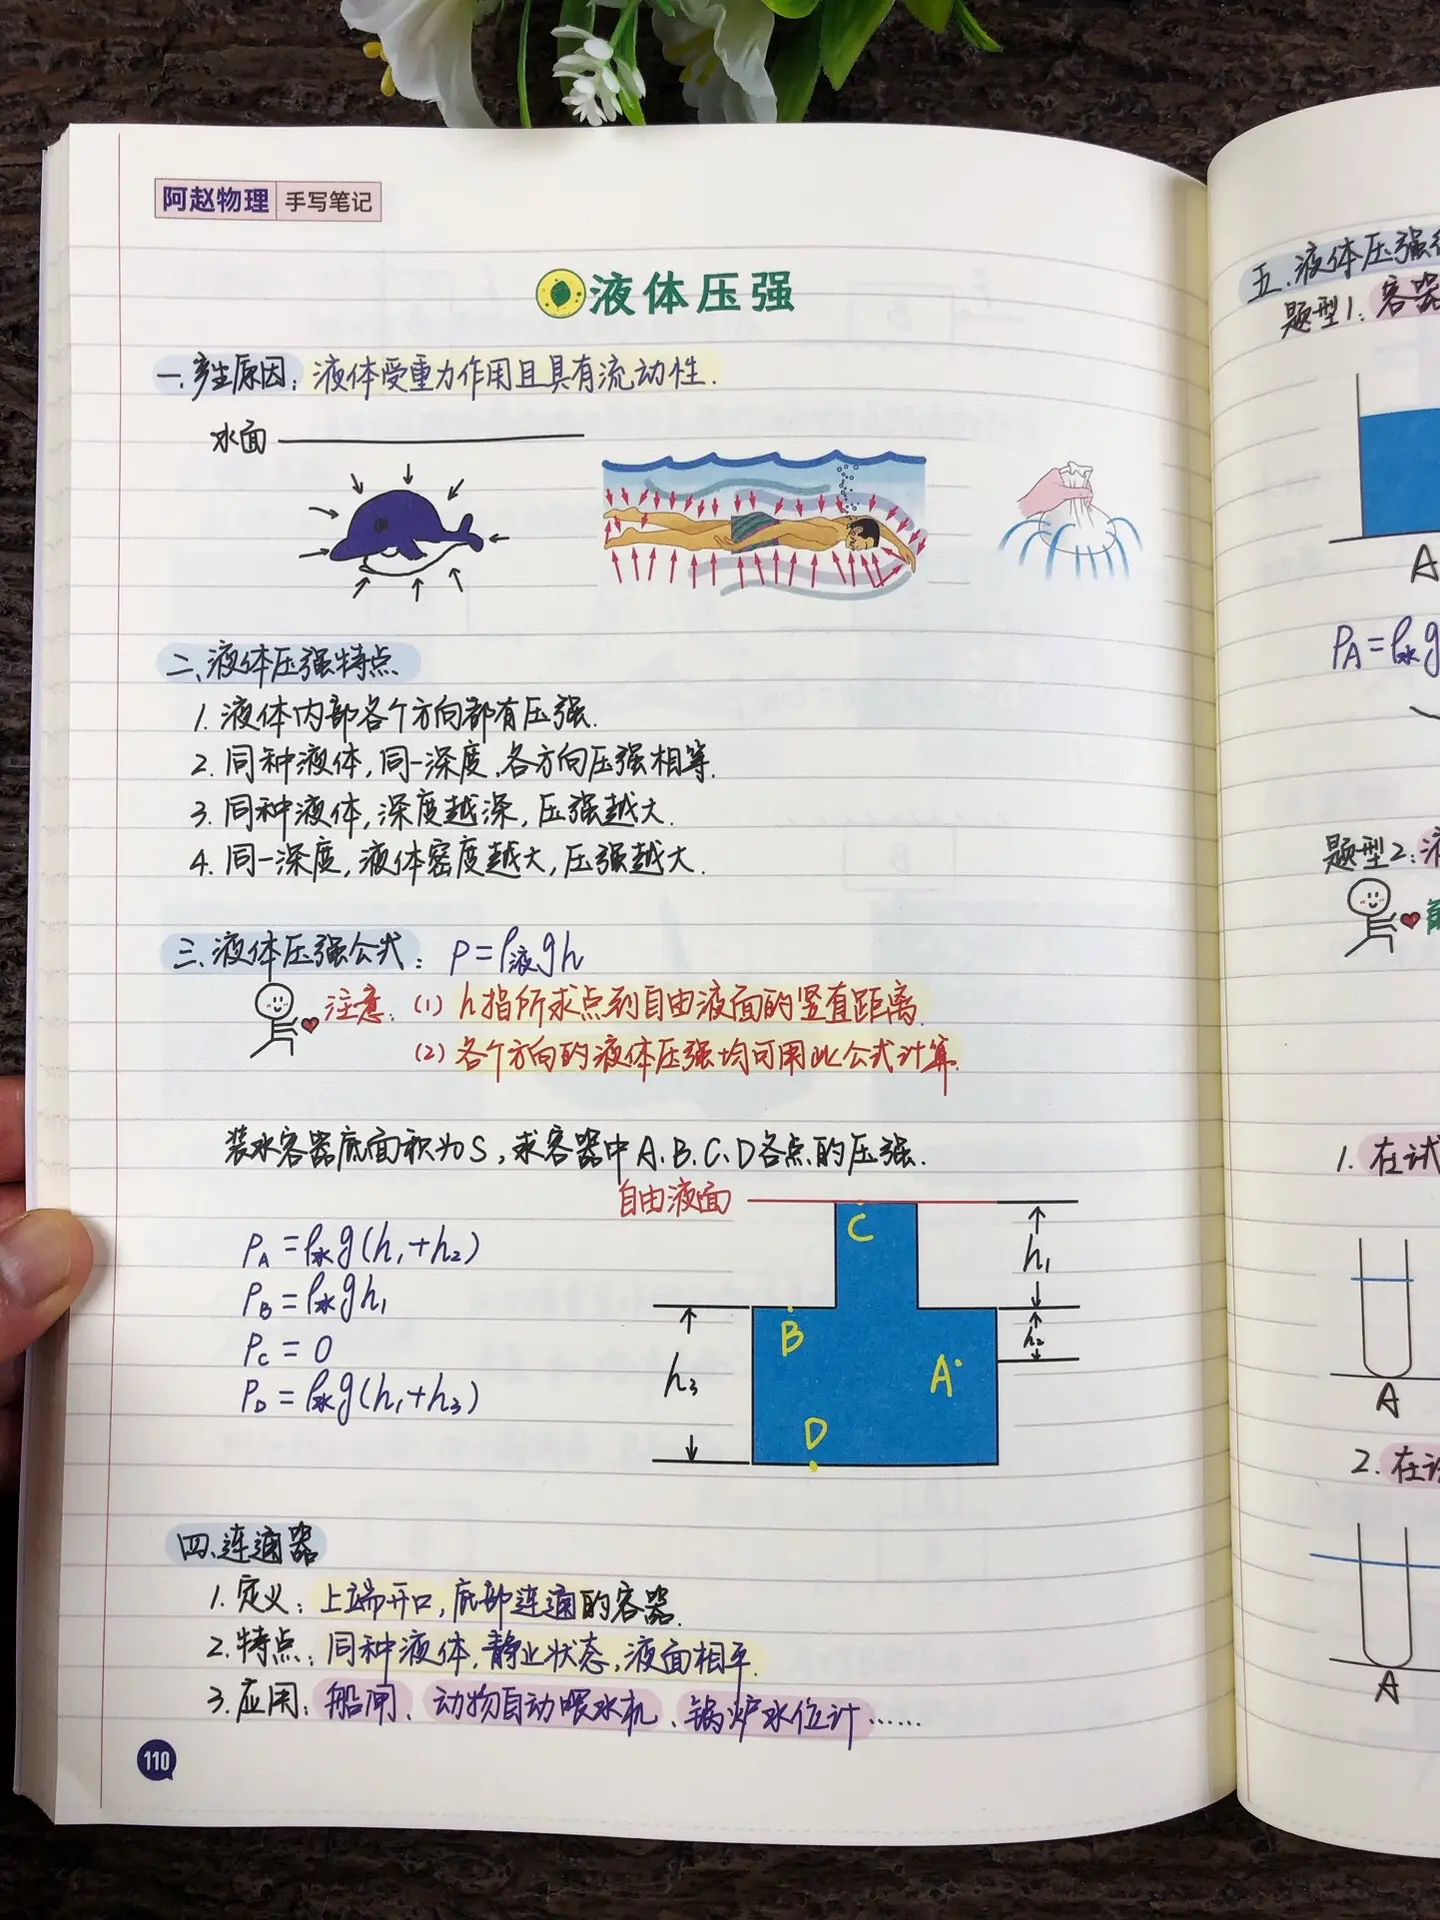 阿赵物理 手写笔记
液体压强
一、产生原因：液体受重力作用且具有流动性.
水面
二、液体压强特点
1. 液体内部各个方向都有压强.
2. 同种液体，同一深度，各方向压强相等.
3. 同种液体，深度越深，压强越大.
4. 同一深度，液体密度越大，压强越大.
三、液体压强公式：P=ρ液gh
注意：(1) h指所求点到自由液面的竖直距离.
(2) 各个方向的液体压强均可用此公式计算.
装水容器底面积为S，求容器中A、B、C、D各点的压强.
自由液面
PA=ρ水g(h1+h2)
PB=ρ水gh1
PC=0
PD=ρ水g(h1+h3)
C
h1
B
h2
A
h3
D
四、连通器
1. 定义：上端开口，底部连通的容器.
2. 特点：同种液体，静止状态，液面相平.
3. 应用：船闸、动物自动喂水机、锅炉水位计……
110
五、液体压强
题型1：容器
A
PA=ρ水g
题型2：液
1. 在试
A
2. 在
A